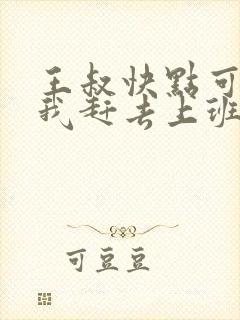 王叔快點可
我赶去上班
可豆豆